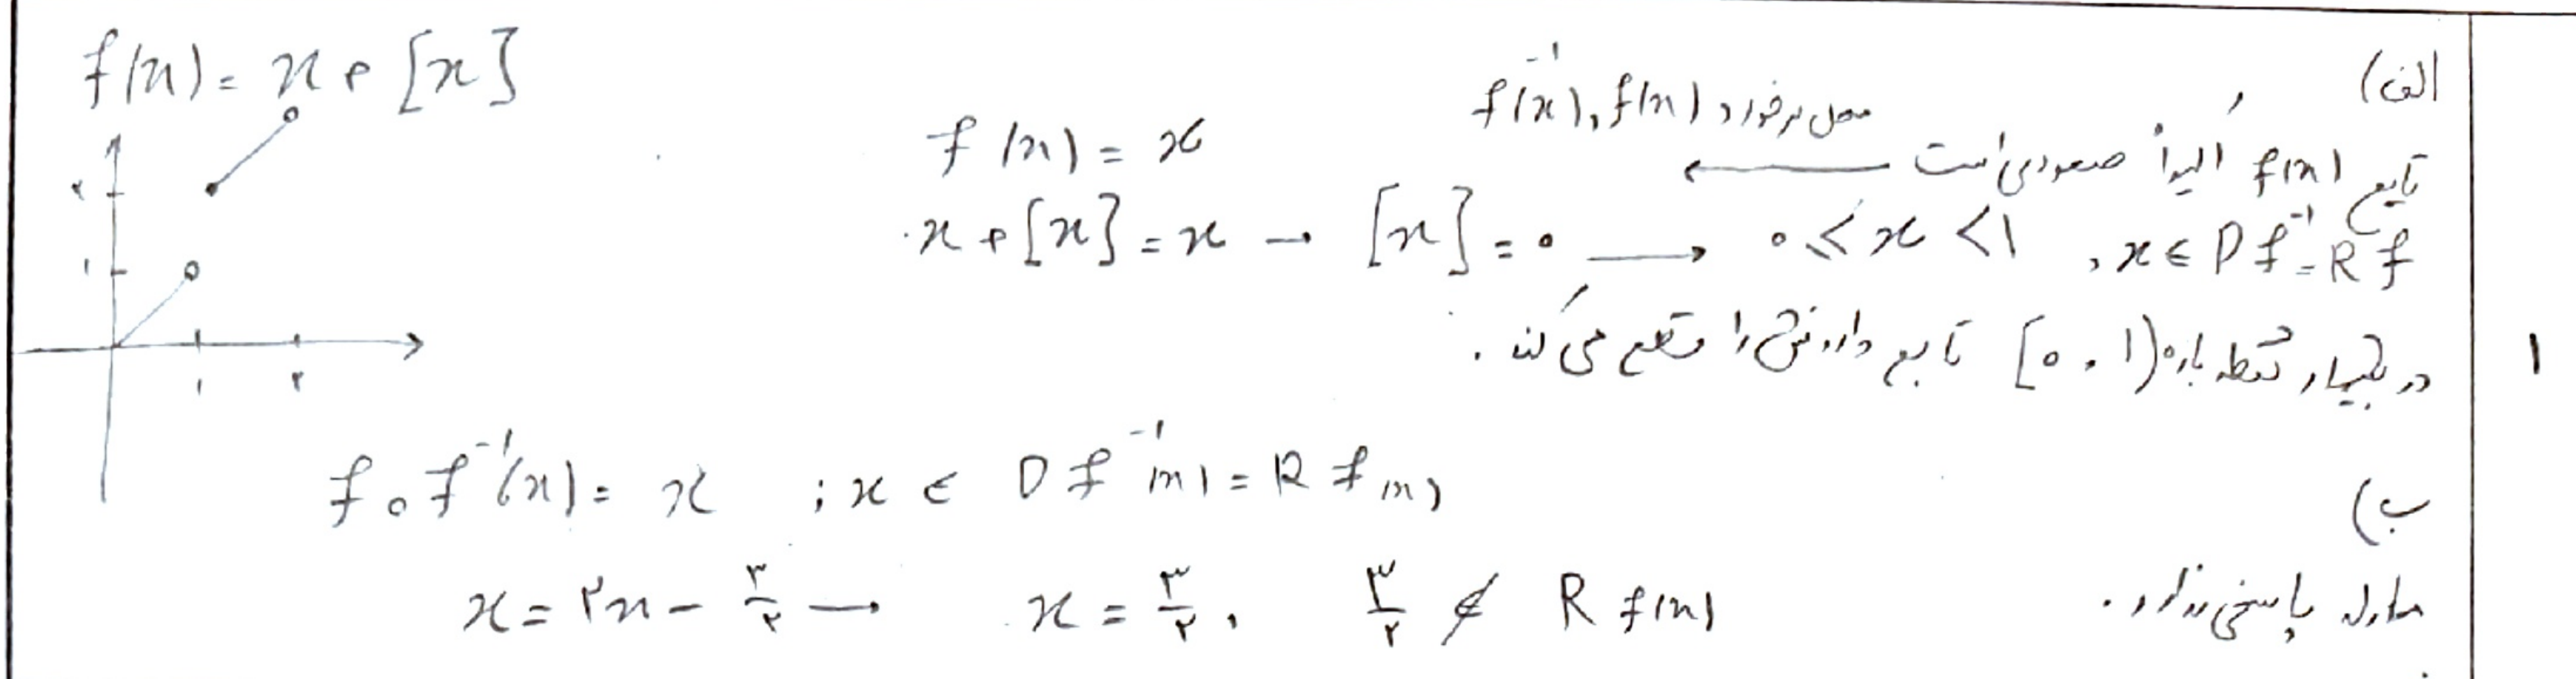 الف)
f(x) = x + [x]
محل برخورد f(x) و f⁻¹(x)
تابع f(x) اکیداً صعودی است ← f(x) = x
x + [x] = x → [x] = ۰ → ۰ ≤ x < ۱ , x ∈ D f⁻¹ = R f
در بیشمار نقطه بازه [۰ , ۱) تابع وارونش را قطع می‌کند .
۲
۱
۱ ۲
۱
ب)
f o f⁻¹(x) = x ; x ∈ D f⁻¹(x) = R f(x)
x = ۲x - ۳/۲ → x = ۳/۲ , ۳/۲ ∉ R f(x)
معادله پاسخی ندارد .